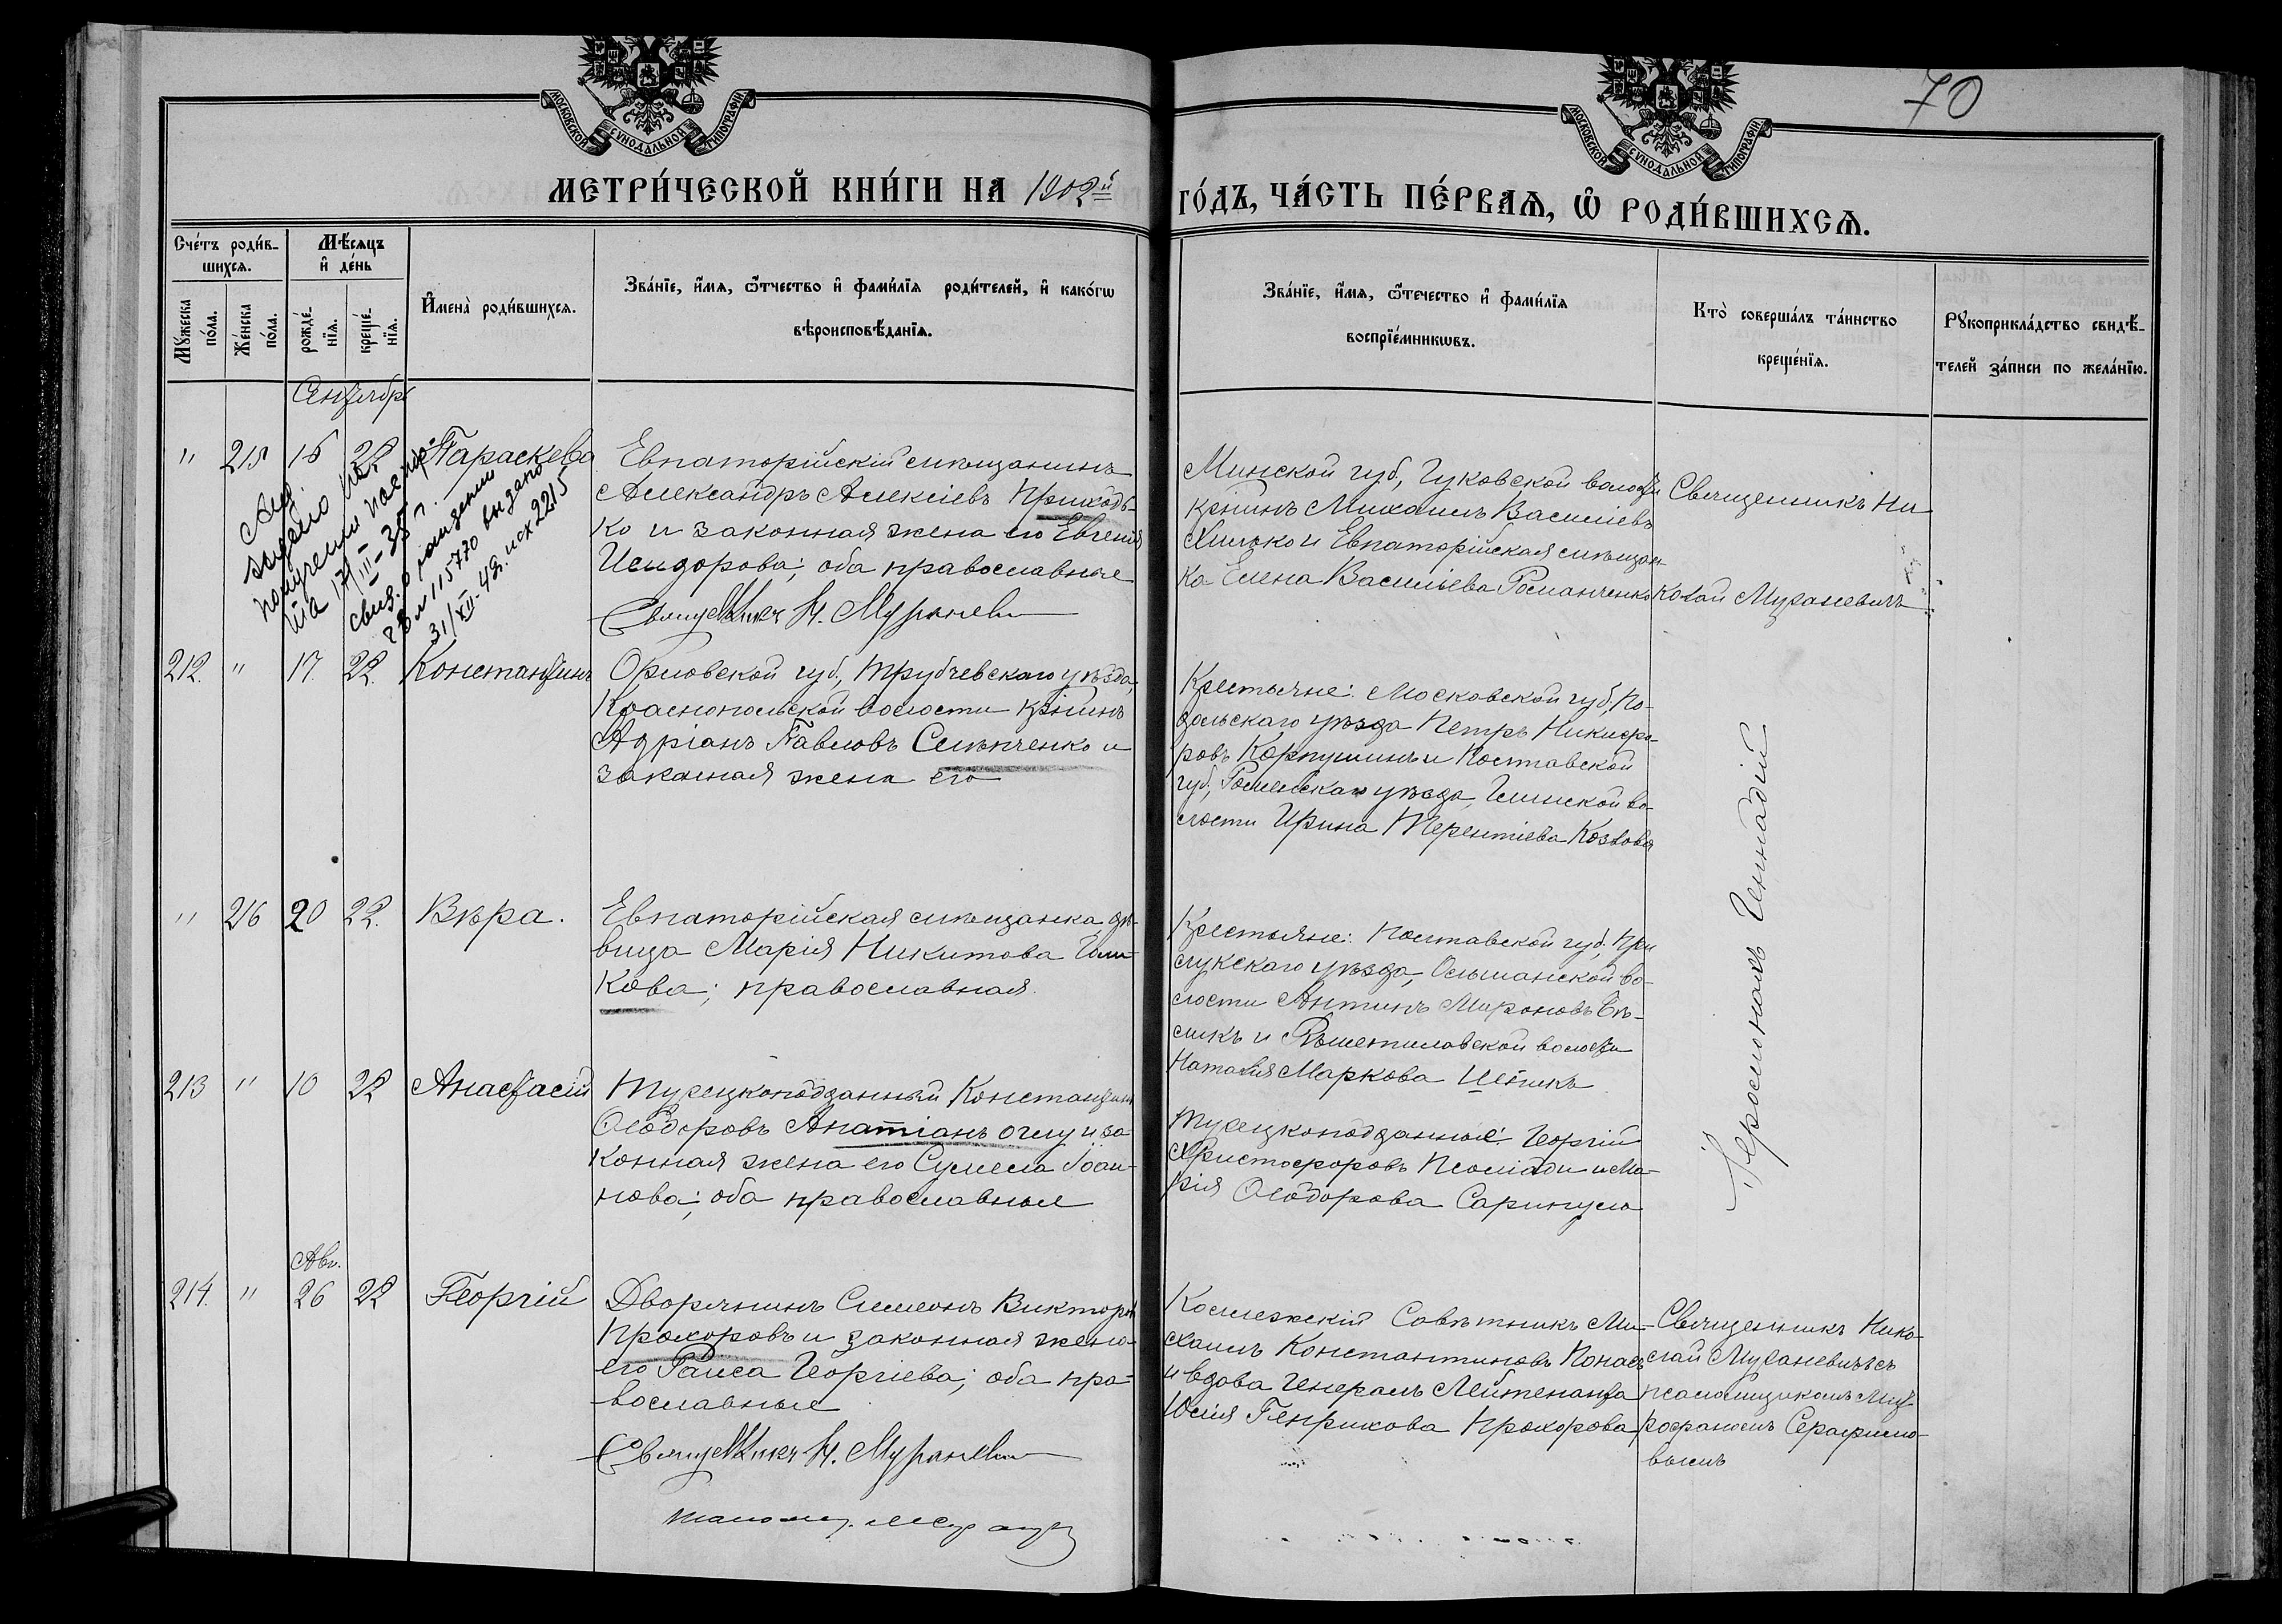 70
МОСКОВСКОЙ СУНОДАЛЬНОЙ ТИПОГРАФІИ
МОСКОВСКОЙ СУНОДАЛЬНОЙ ТИПОГРАФІИ
МЕТРИ́ЧЕСКОЙ КНИ́ГИ НА 1902й ГО́ДЪ, ЧА́СТЬ ПЕ́РВАѦ, Ѡ РОДИ́ВШИХСѦ.
Сче́тъ роди́в-
шихсѧ.
Мꙋ́жеска
по́ла.
Же́нска
по́ла.
Мѣ́сѧцъ
и҆ де́нь
рожде́-
нїѧ.
креще́-
нїѧ.
И҆мена̀ роди́вшихсѧ.
Зва́нїе, и҆́мѧ, ѻ҆́тчество и҆ фами́лїѧ роди́телей, и҆ како́гѡ
вѣроисповѣ́данїѧ.
Зва́нїе, и҆́мѧ, ѻ҆те́чество и҆ фами́лїѧ
воспрїе́мникѡвъ.
Кто̀ соверша́лъ та́инство
креще́нїѧ.
Рꙋкоприкла́дство свидѣ́-
телей за́писи по жела́нїю.
Сентябрь
" 215 16 22 Параскева
Евпаторійскій мѣщанинъ
Александръ Алексіевъ Приходь-
ко и законная жена его Евгенія
Исидорова; оба православные
Священникъ Н. Мураневич
Минской губ, волости
крнинъ Михаилъ Василіевъ
Хилько и Евпаторійская мѣщан-
ка Елена Васильева Романченко
Священникъ Ни-
колай Мураневичъ
получении паспор-
та 17/III-35 г.
свид. о рождении
115770 выдано
31/XII-48. исх 2215
212. " 17. 22. Константинъ
Орловской губ., Трубчевскаго уѣзда,
Краснопольской волости крнинъ
Адріанъ Павловъ Семенченко и
законная жена его
Крестьяне: Московской губ, По-
дольскаго уѣзда Петръ Никифо-
ровъ Карпушинъ и Полтавской
губ, Роменскаго уѣзда, Глинской во-
лости Ирина Терентіева Козлова
" 216 20 22. Вѣра.
Евпаторійская мѣщанка, дѣ-
вица Марія Никитова Голи-
кова; православная
Крестьяне: Полтавской губ, При-
лукскаго уѣзда, Ольшанской во-
лости Антинъ Мироновъ
и Рѣшетиловской волости
Наталія Маркова
Іеромонахъ Геннадій
213 " 10 22 Анастасій
Турецкоподданный Константинъ
Ѳеодоровъ Анатіанъ оглу и за-
конная жена его Сумела Іоан-
нова; оба православные
Турецкоподданные: Георгій
Христофоровъ Псоміади и Ма-
рія Ѳеодорова
Авг.
214. " 26 22 Георгій
Дворянинъ Симеонъ Викторовъ
Прохоровъ и законная жена
его Раиса Георгіева; оба пра-
вославные
Священникъ Н. Мураневич
Коллежскій Совѣтникъ Ми-
хаилъ Константиновъ
и вдова Генералъ Лейтенанта
Юлія Генрихова Прохорова
Священникъ Нико-
лай Мураневичъ съ
псаломщикомъ Мит-
рофаномъ Серафимо-
вымъ